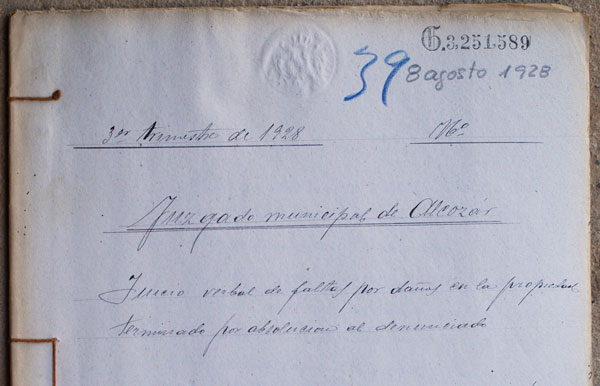 G.3.251.589
39 8 agosto 1928
3er trimestre de 1928 Nº
Juzgado municipal de Alcozar
Juicio verbal de faltas por daños en la propiedad
terminado por absolucion al denunciado